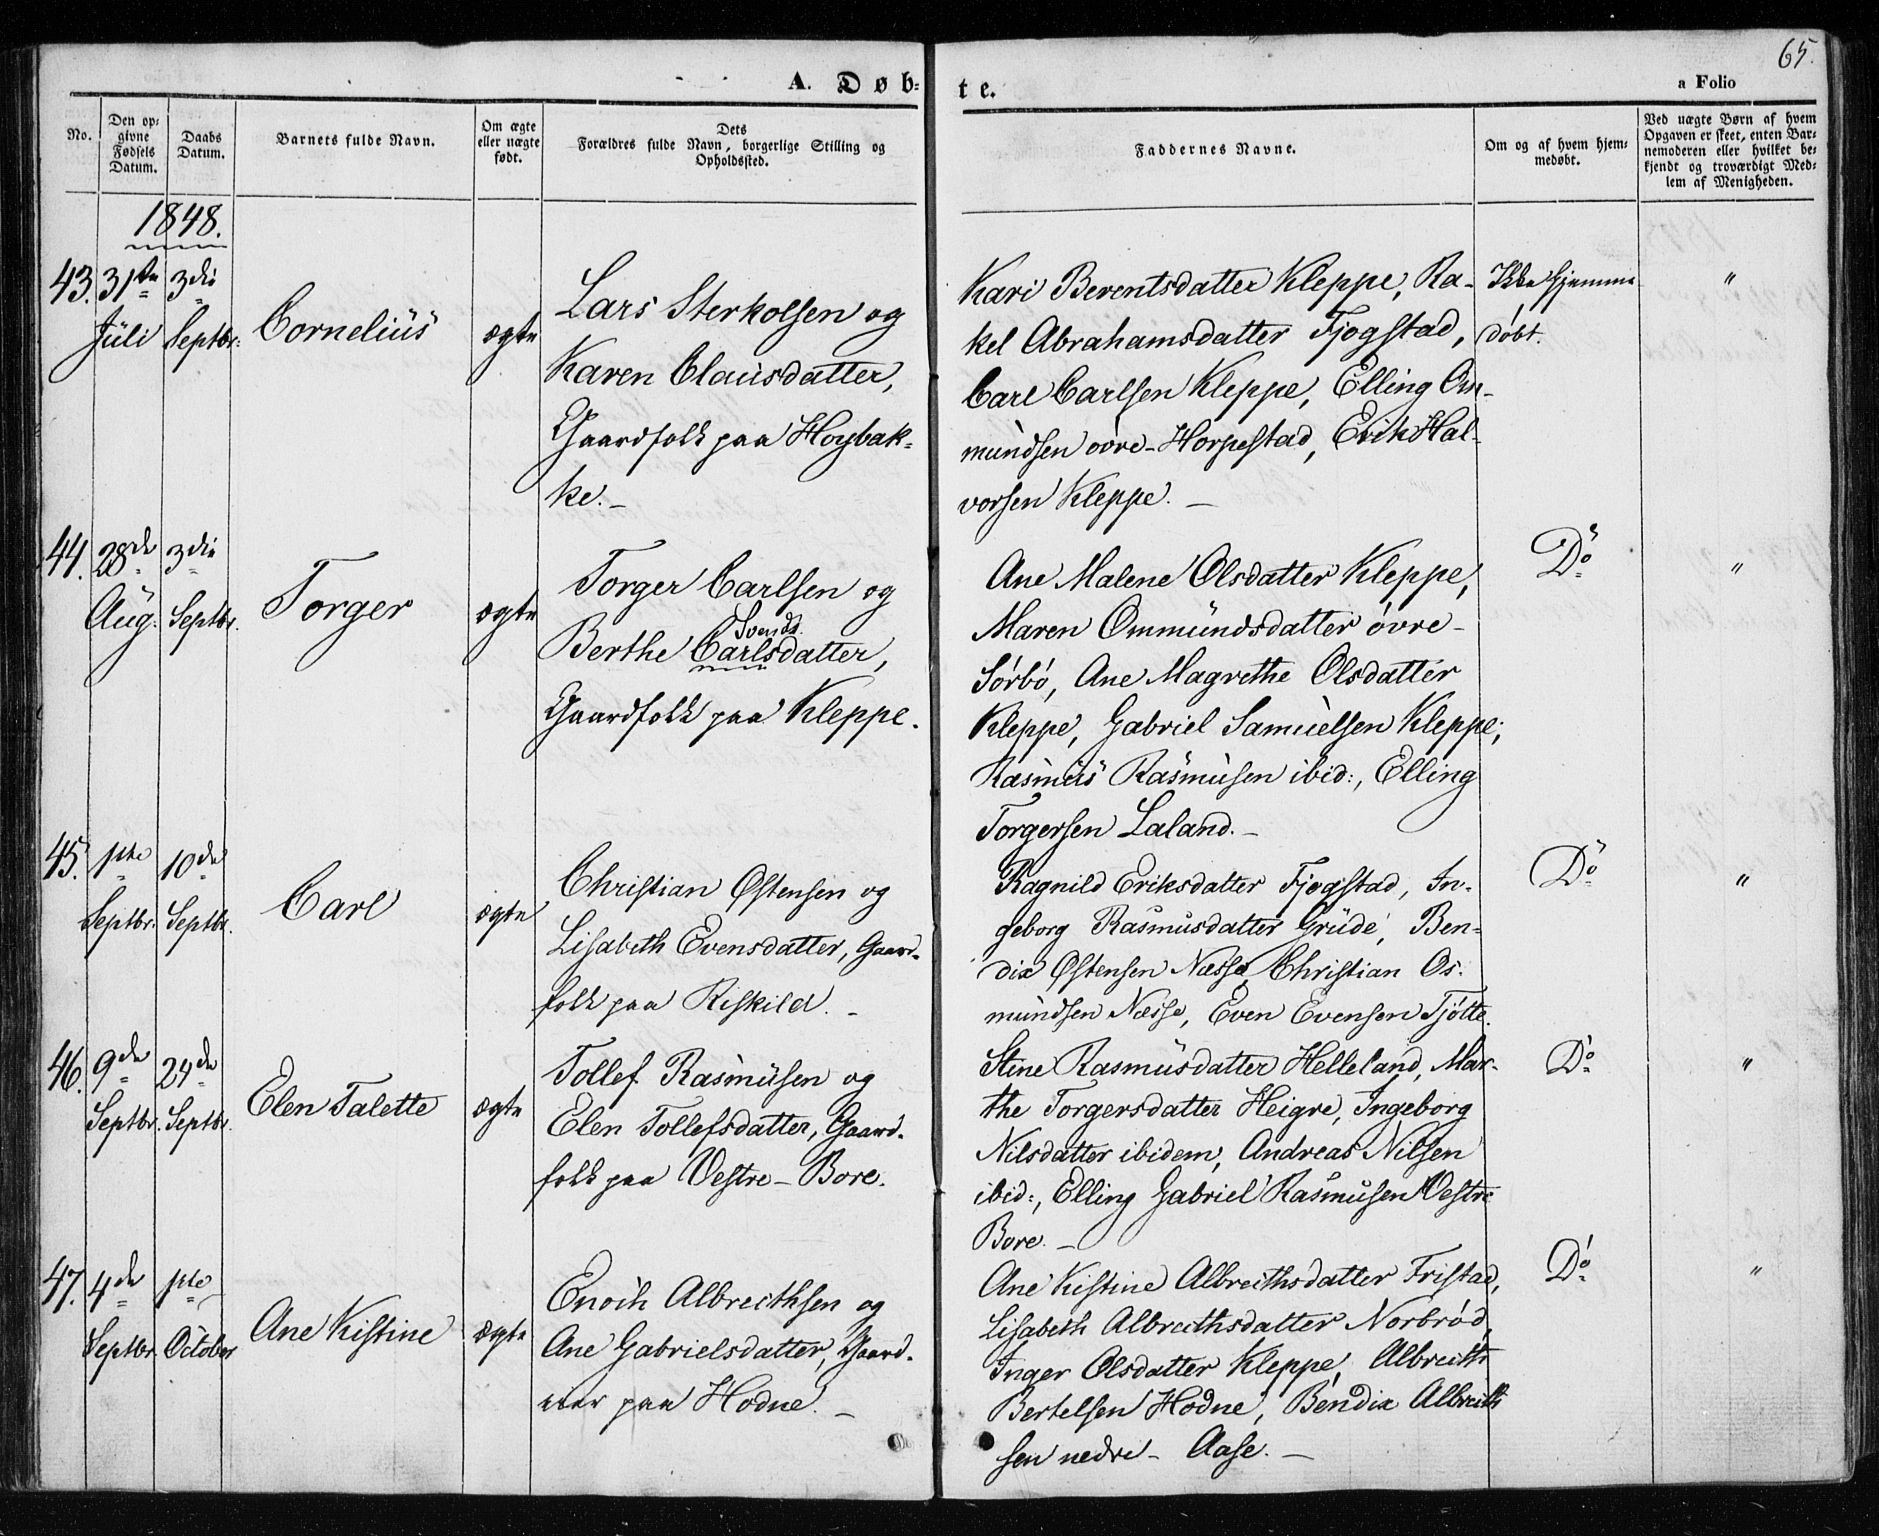 65.
A. Døb-
te.
a Folio
No.
Den op-
givne
Fødsels
Datum.
Daabs
Datum.
Barnets fulde Navn.
Om ægte
eller uægte
født.
Dets
Forældres fulde Navn, borgerlige Stilling og
Opholdssted.
Faddernes Navne.
Om og af hvem hjem-
medøbt.
Ved uægte Børn af hvem
Opgaven er skeet, enten Bar-
nemoderen eller hvilket be-
kjendt og troværdigt Med-
lem af Menigheden.
1848.
43. 31te
Juli
3die
Septbr.
Cornelius
ægte
Lars Sterkolsen og
Karen Clausdatter,
Gaardfolk paa Hoybak-
ke. –
Kari Berentsdatter Kleppe, Ra-
kel Abrahamsdatter Fjogstad,
Carl Carlsen Kleppe, Elling Om-
mundsen ovre-Horpestad, Erik Hal-
vorsen Kleppe. –
Ikke Hjemme
døbt.
"
44. 28de
Aug.
3die
Septbr.
Torger
ægte
Torger Carlsen og
Svends
Berthe Carlsdatter,
Gaardfolk paa Kleppe.
Ane Malene Olsdatter Kleppe,
Maren Ommundsdatter øvre-
Sørbø, Ane Magrethe Olsdatter
Kleppe, Gabriel Samuelsen Kleppe,
Rasmus Rasmusen ibid:, Elling
Torgersen Laland. –
Do
"
45. 1ste
Septbr.
10de
Septbr.
Carl
ægte
Christian Østensen og
Lisabeth Evensdatter, Gaard-
folk paa Riskild. –
Ragnild Eriksdatter Fjogstad, In-
geborg Rasmusdatter Grude, Ben-
dix Østensen Næsse, Christian Os-
mundsen Næsse, Even Evensen Tjøtte.
Do
"
46. 9de
Septbr.
24de
Septbr.
Elen Talette
ægte
Tollef Rasmusen og
Elen Tollefsdatter, Gaard-
folk paa Vestre-Bore.
Stine Rasmusdatter Helleland, Mar-
the Torgersdatter Heigre, Ingeborg
Nilsdatter ibidem, Andreas Nilsen
ibid:, Elling Gabriel Rasmusen Vestre
Bore. –
Do
"
47. 4de
Septbr.
1ste
October
Ane Kistine
ægte
Enoch Albrecthsen og
Ane Gabrielsdatter, Gaard-
mær paa Hodne. –
Ane Kistine Albrecthsdatter Fristad,
Lisabeth Albrecthsdatter Norbrød,
Inger Olsdatter Kleppe, Albrecth
Bertelsen Hodne, Bendix Albrecth
sen nedre- Aase. –
Do
"